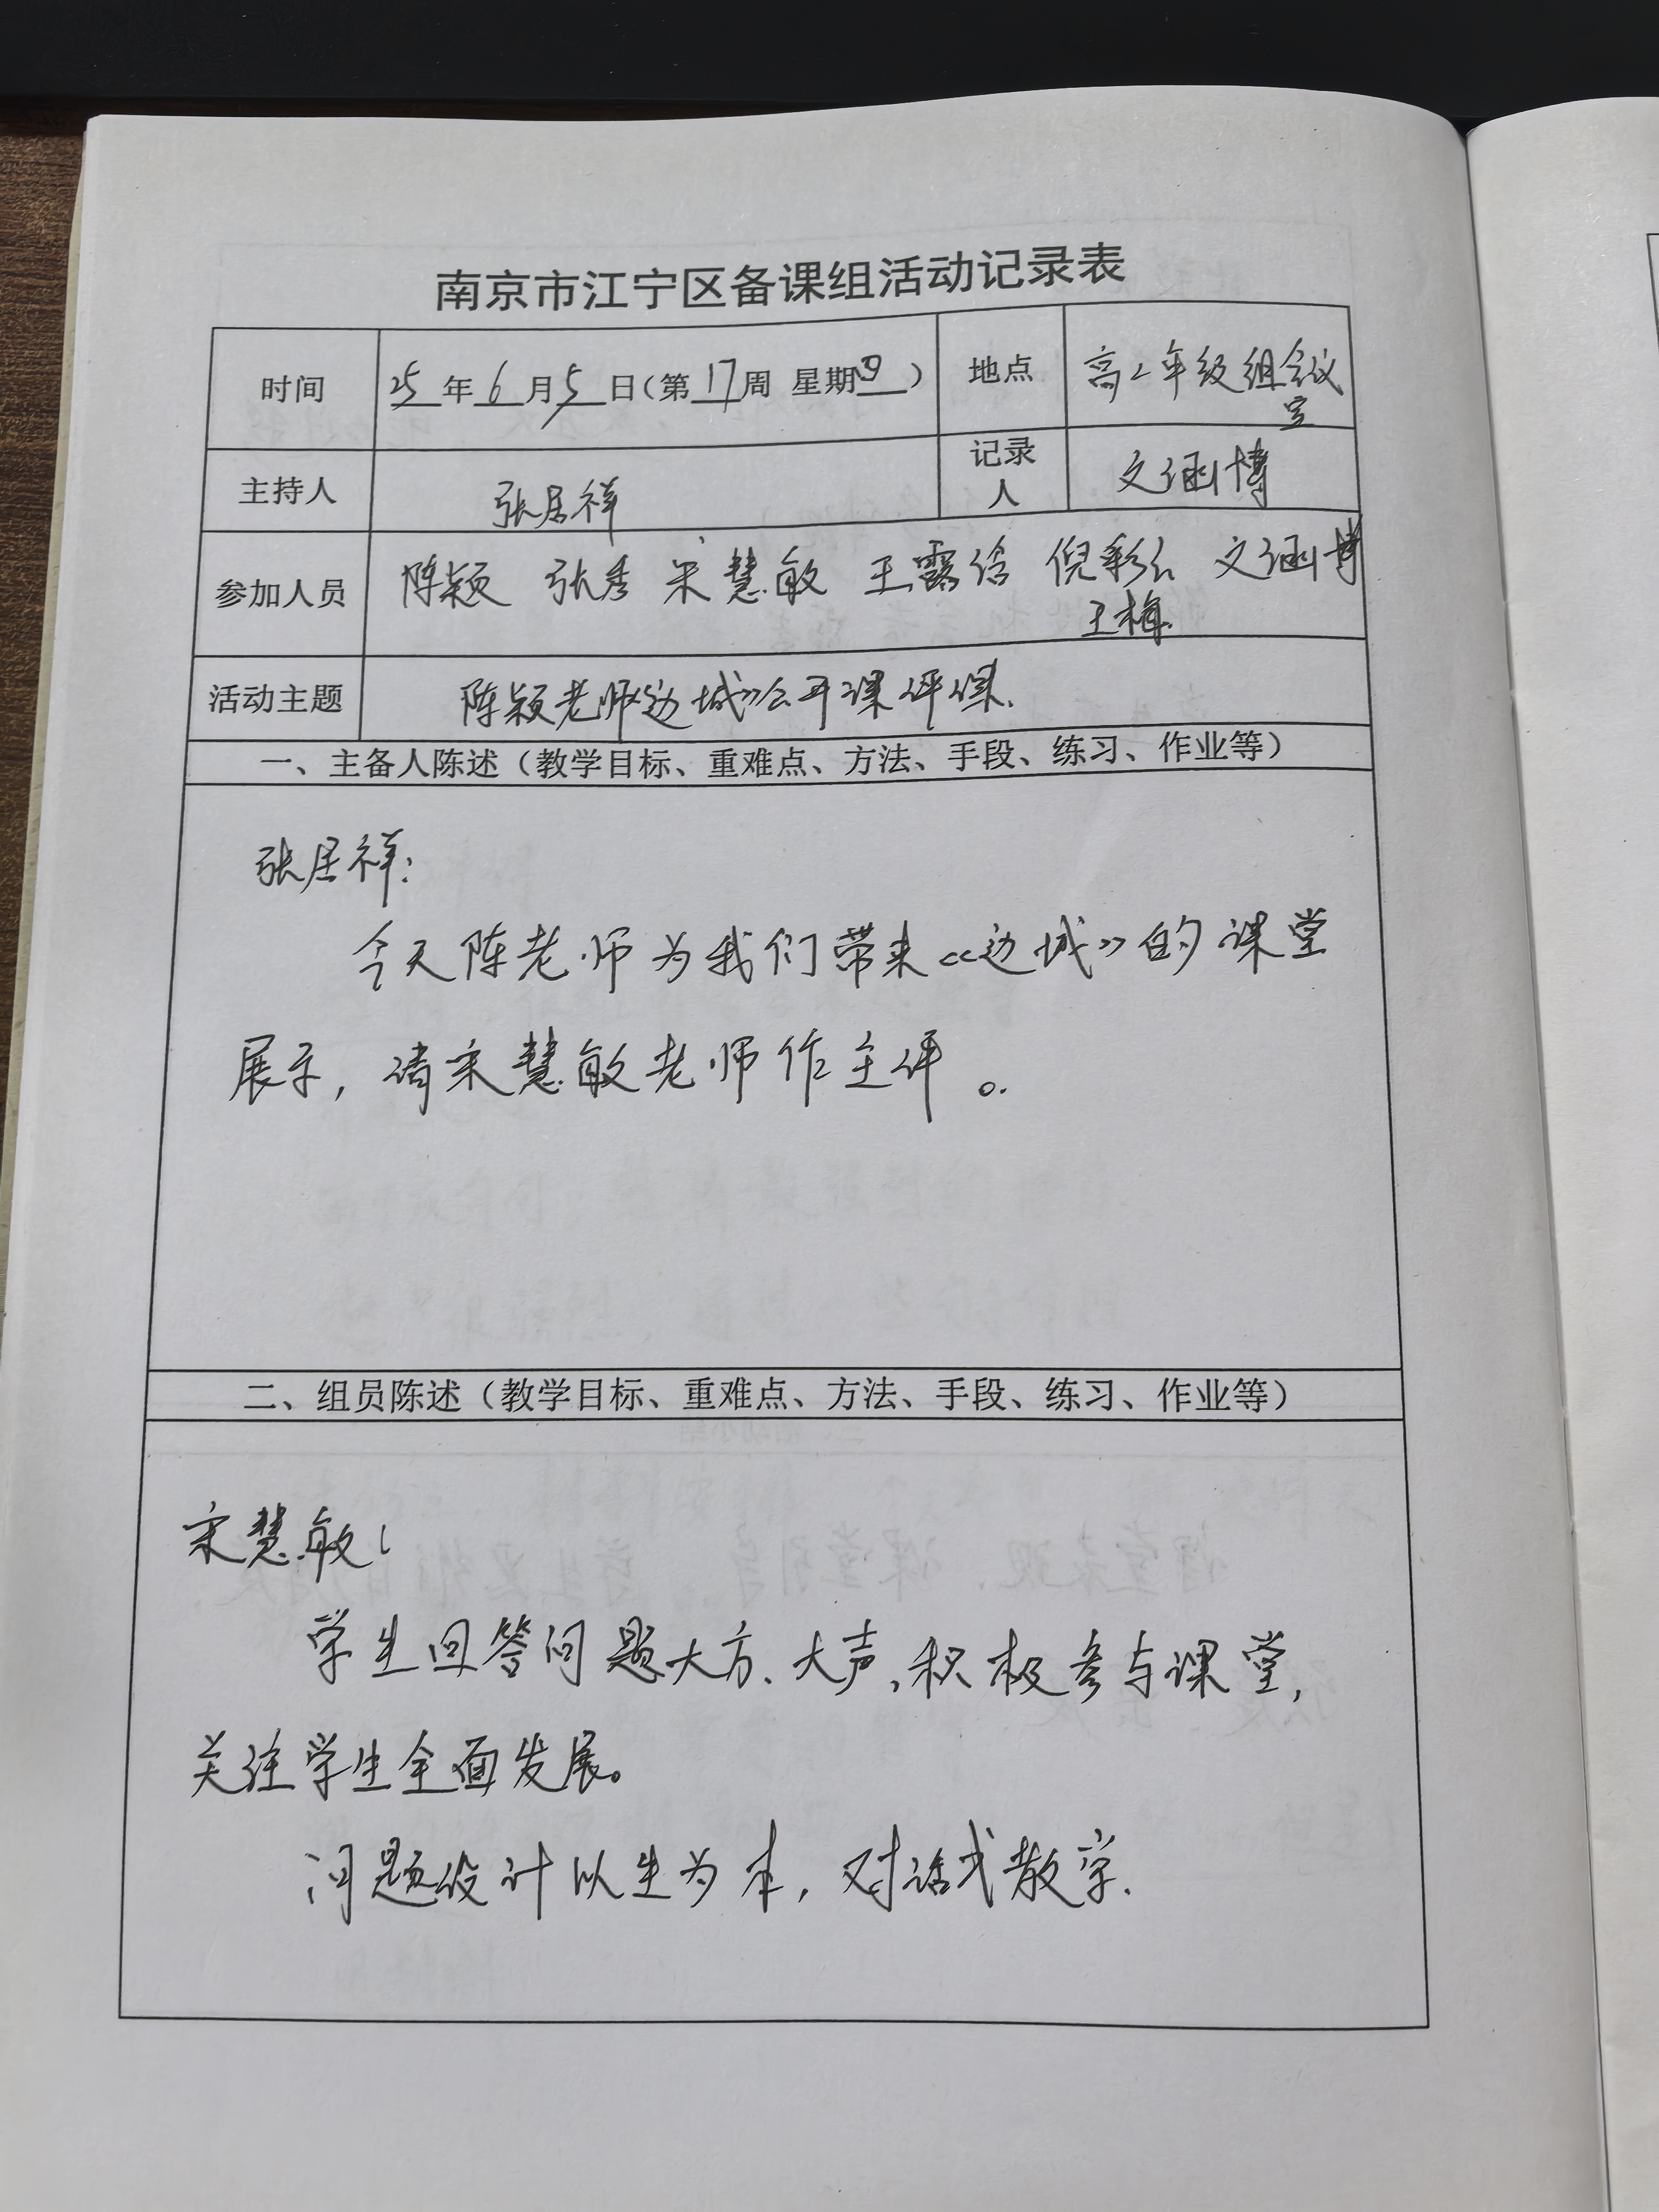 南京市江宁区备课组活动记录表
时间 25年6月5日(第17周 星期四) 地点 高2年级组会议室
主持人 张居祥 记录人 文涵博
参加人员 陈颖 张秀 宋慧敏 王露晗 倪彩红 文涵博
王梅
活动主题 陈颖老师《边城》公开课评课.
一、主备人陈述（教学目标、重难点、方法、手段、练习、作业等）
张居祥:
今天陈老师为我们带来《边城》的课堂
展示，请宋慧敏老师作主评。
二、组员陈述（教学目标、重难点、方法、手段、练习、作业等）
宋慧敏:
学生回答问题大方、大声，积极参与课堂，
关注学生全面发展。
问题设计以生为本，对话式教学.